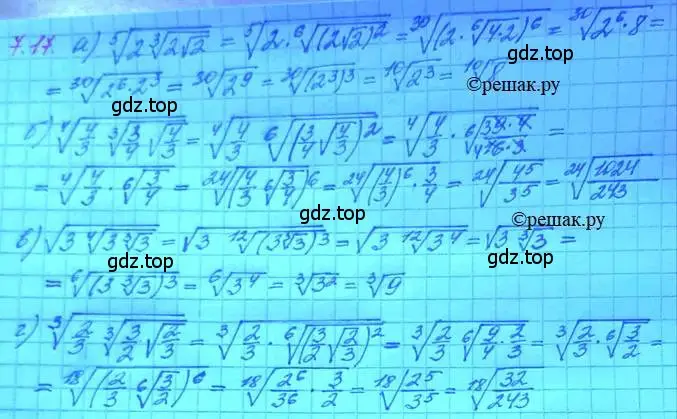 7.17 а) ⁵√(2 ∛(2√2)) = ⁵√(2 · ⁶√((2√2)²)) = ³⁰√((2 · ⁶√(4·2))⁶) = ³⁰√(2⁶ · 8) =
= ³⁰√(2⁶ · 2³) = ³⁰√(2⁹) = ³⁰√((2³)³) = ¹⁰√(2³) = ¹⁰√8
gdz.top
©решак.ру
б) ⁴√(4/3 ∛(3/4 √(4/3))) = ⁴√(4/3 ⁶√((3/4 √(4/3))²)) = ⁴√(4/3 · ⁶√(3²·4/4²·3)) =
gdz.top
= ⁴√(4/3 · ⁶√(3/4)) = ²⁴√((4/3 ⁶√(3/4))⁶) = ²⁴√((4/3)⁶ · 3/4) = ²⁴√(4⁵/3⁵) = ²⁴√(1024/243)
gdz.top
©решак.ру
в) √(3 ⁴√(3 ∛3)) = √(3 ¹²√((3 ∛3)³)) = √(3 ¹²√(3⁴)) = √(3 ∛3) =
gdz.top
= ⁶√((3 ∛3)³) = ⁶√(3⁴) = ∛(3²) = ∛9
gdz.top
г) ∛(2/3 ∛(3/2 √(2/3))) = ∛(2/3 · ⁶√((3/2 √(2/3))²)) = ∛(2/3 ⁶√(9/4 · 2/3)) = ∛(2/3 · ⁶√(3/2)) =
= ¹⁸√((2/3 ⁶√(3/2))⁶) = ¹⁸√(2⁶/3⁶ · 3/2) = ¹⁸√(2⁵/3⁵) = ¹⁸√(32/243)
gdz.top